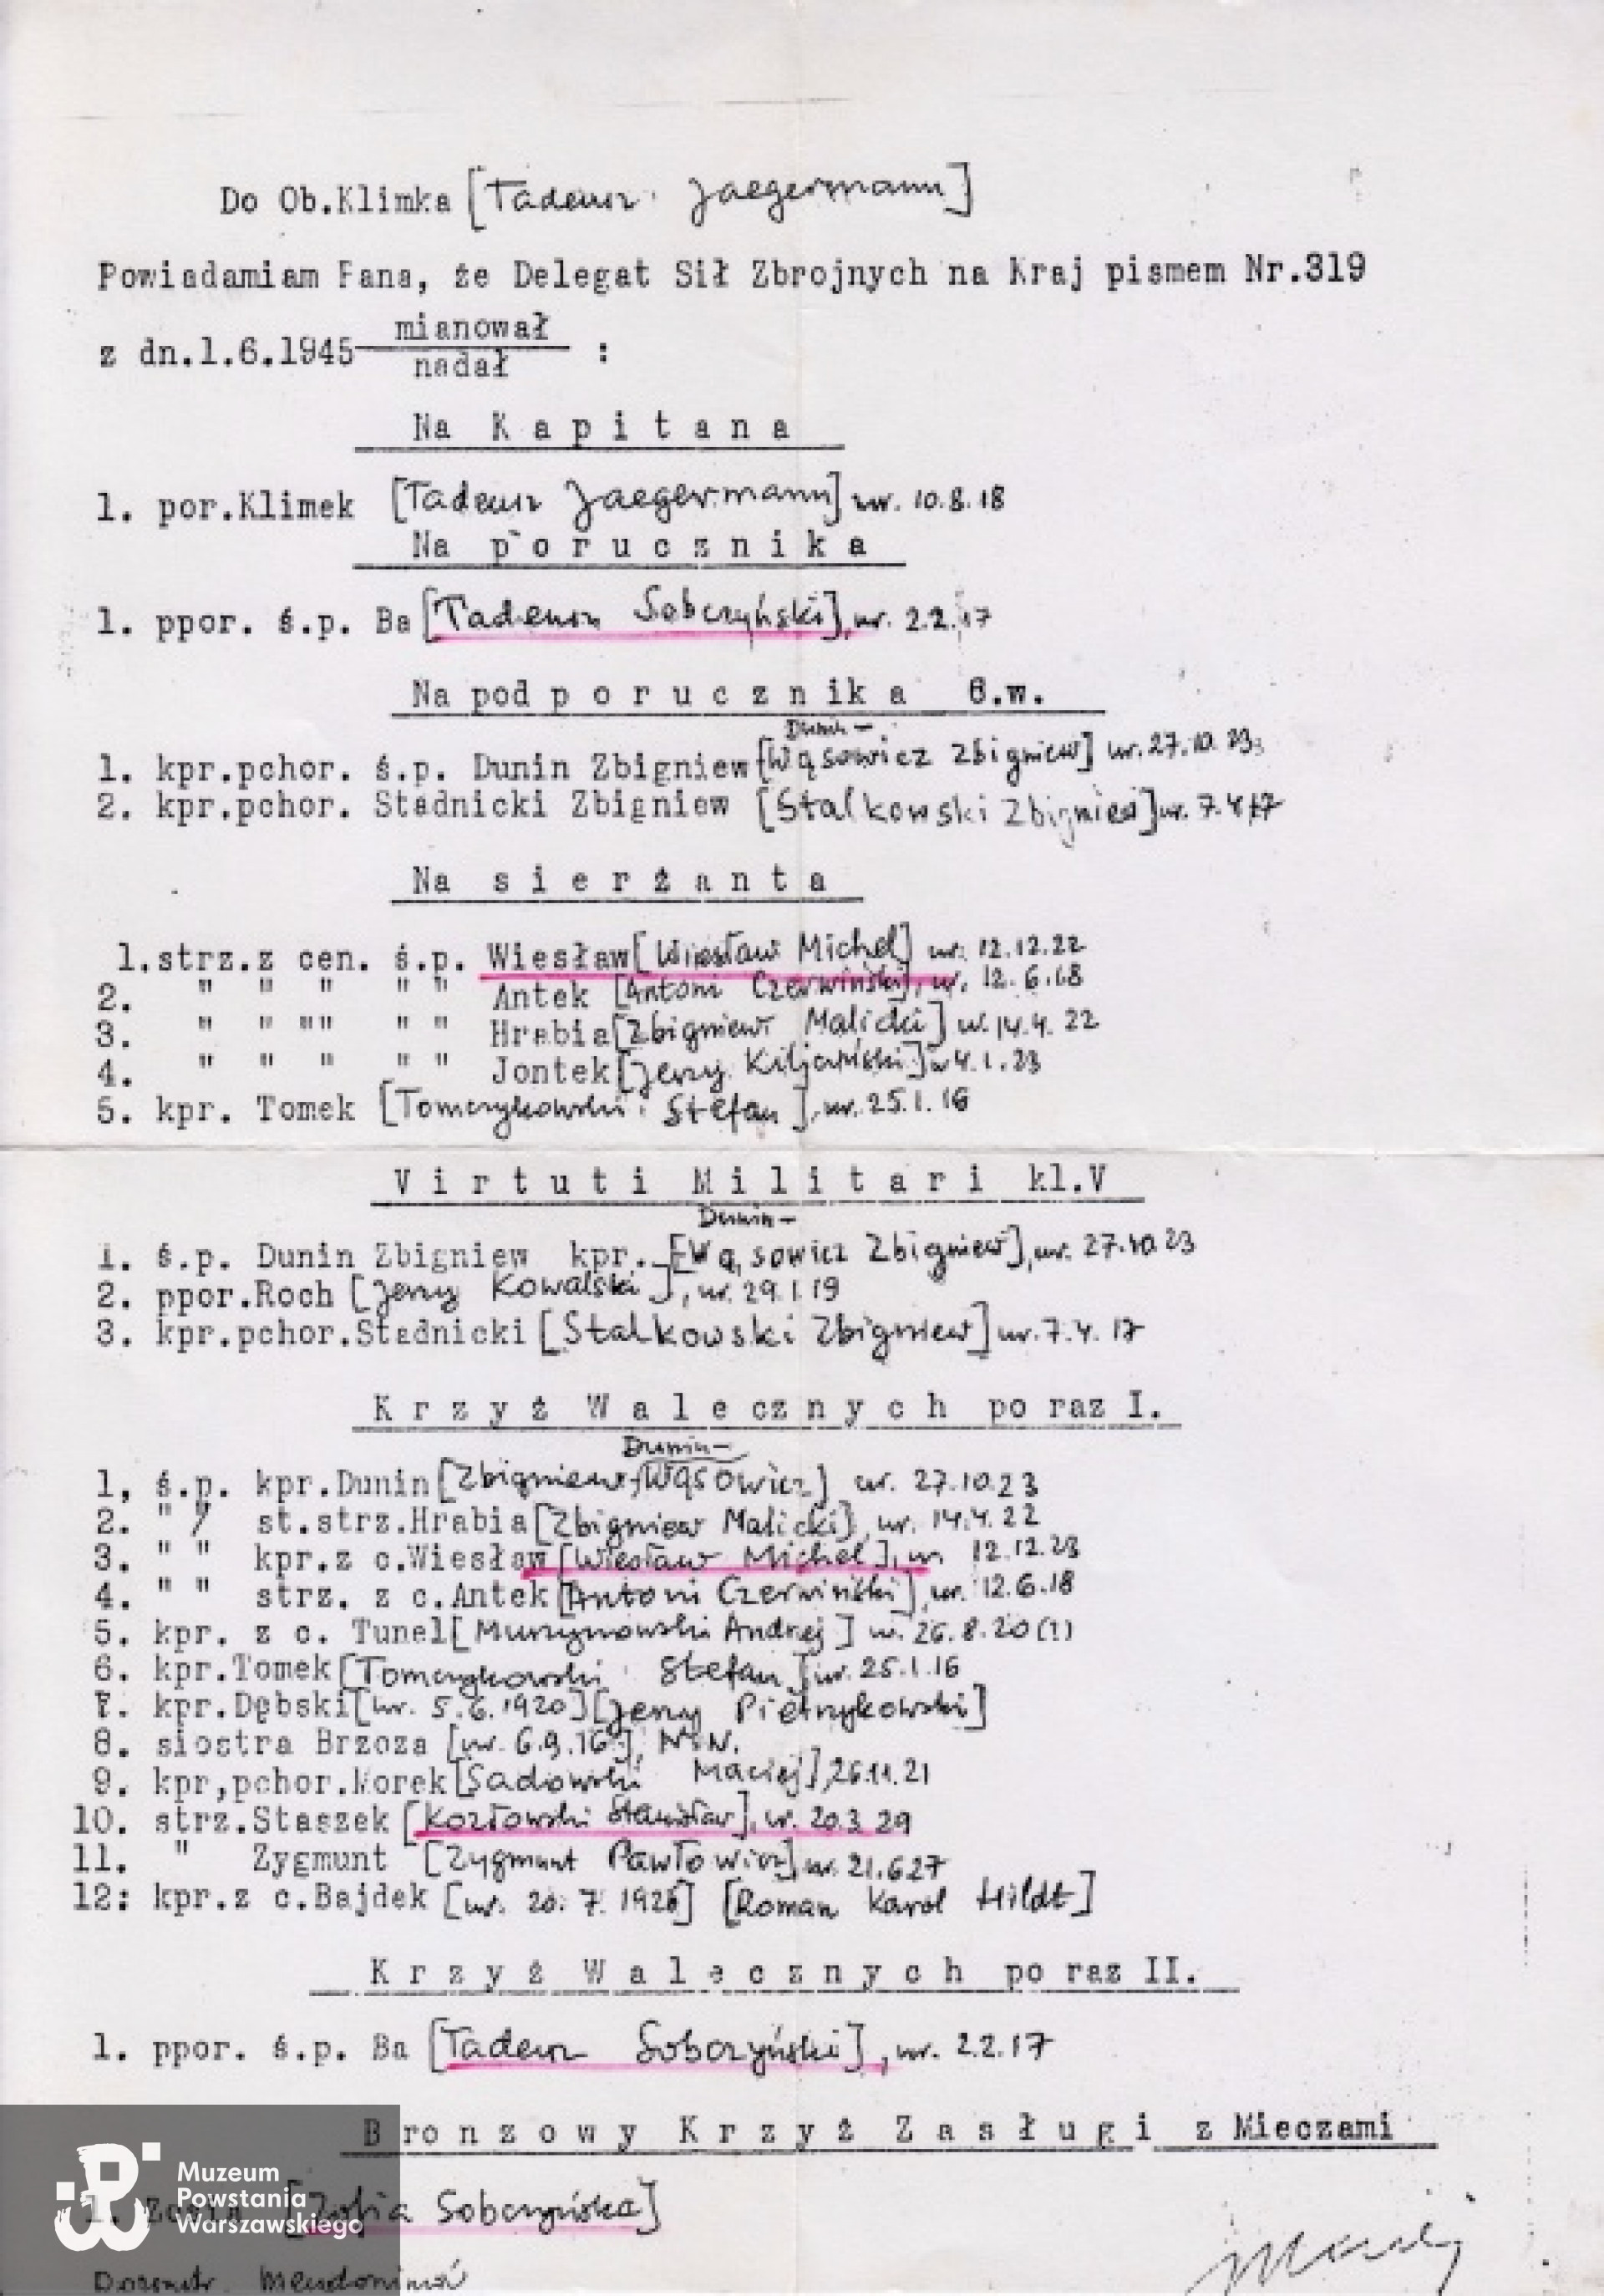 Do Ob.Klimka [Tadeusz Jaegermann]
Powiadamiam Pana, że Delegat Sił Zbrojnych na Kraj pismem Nr.319
mianował
z dn.1.6.1945 :
nadał
Na Kapitana
1. por.Klimek [Tadeusz Jaegermann] ur. 10.8.18
Na porucznika
1. ppor. ś.p. Ba [Tadeusz Sobczyński], ur. 2.2.17
Na podporucznika c.w.
Dunin-
1. kpr.pchor. ś.p. Dunin Zbigniew [Wąsowicz Zbigniew] ur. 27.10.23
2. kpr.pchor. Stadnicki Zbigniew [Stalkowski Zbigniew] ur. 7.4.17
Na sierżanta
1.strz.z cen. ś.p. Wiesław [Wiesław Michel] ur. 12.12.22
2. " " " " " Antek [Antoni Czerwiński], ur. 12.6.18
3. " " "" " " Hrabia [Zbigniew Malicki] ur. 14.4.22
4. " " " " " Jontek [Jerzy Kiljański] ur 4.1.23
5. kpr. Tomek [Tomczykowski Stefan], ur. 25.1.16
Virtuti Militari kl.V
Dunin-
1. ś.p. Dunin Zbigniew kpr. [Wąsowicz Zbigniew], ur. 27.10.23
2. ppor.Roch [Jerzy Kowalski], ur. 29.1.19
3. kpr.pchor.Stadnicki [Stalkowski Zbigniew] ur. 7.4.17
Krzyż Walecznych po raz I.
Dunin-
1, ś.p. kpr.Dunin [Zbigniew Wąsowicz] ur. 27.10.23
2. " " st.strz.Hrabia [Zbigniew Malicki], ur. 14.4.22
3. " " kpr.z c.Wiesław [Wiesław Michel], ur. 12.12.23
4. " " strz. z c.Antek [Antoni Czerwiński], ur. 12.6.18
5. kpr. z c. Tunel [Murzynowski Andrzej] ur. 26.8.20 (?)
6. kpr.Tomek [Tomczykowski Stefan] ur. 25.1.16
7. kpr.Dębski [ur. 5.6.1920] [Jerzy Pietrzykowski]
8. siostra Brzoza [ur. 6.9.16], N.N.
9. kpr,pchor.Morek [Sadowski Maciej], 26.11.21
10. strz.Staszek [Kozłowski Stanisław], ur. 20.3.29
11. " Zygmunt [Zygmunt Pawłowicz] ur. 21.6.27
12: kpr.z c.Bajdek [ur. 20.7.1926] [Roman Karol Hildt]
Krzyż Walecznych po raz II.
1. ppor. ś.p. Ba [Tadeusz Sobczyński], ur. 2.2.17
Bronzowy Krzyż Zasługi z Mieczami
1. Zosia [Zofia Sobczyńska]
Muzeum
Powstania
Warszawskiego